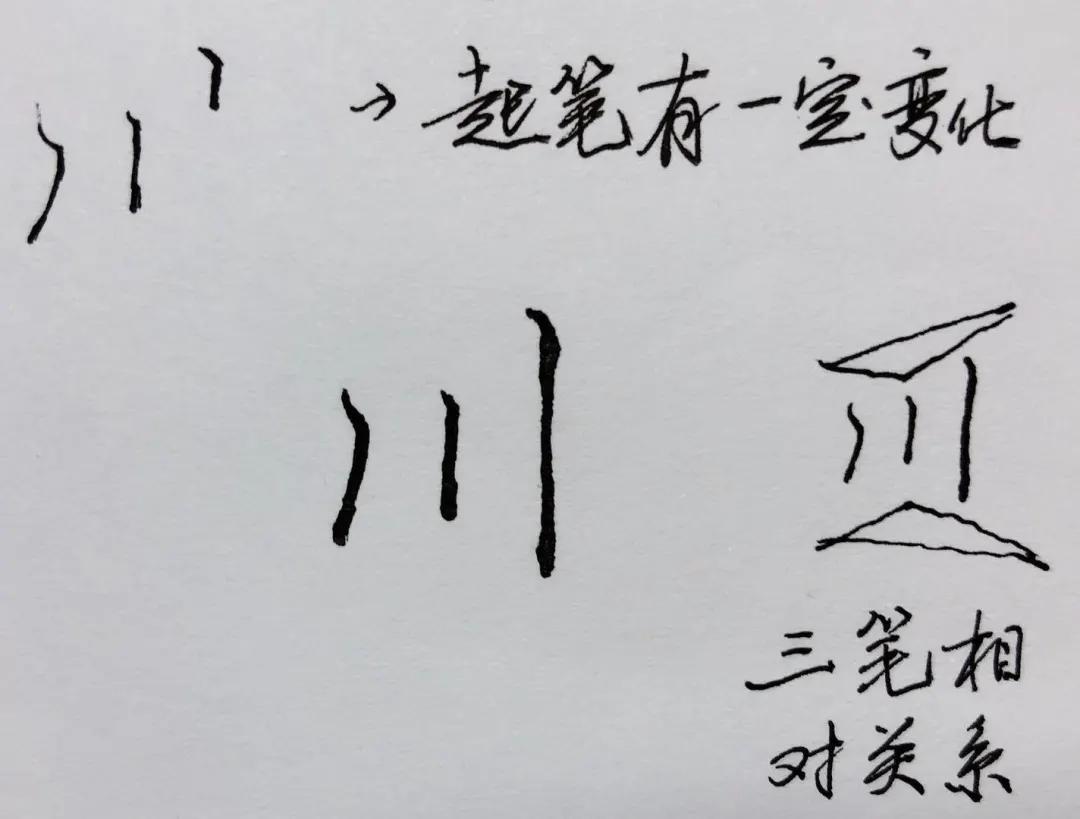 →起笔有一定变化
川
川
三笔相
对关系